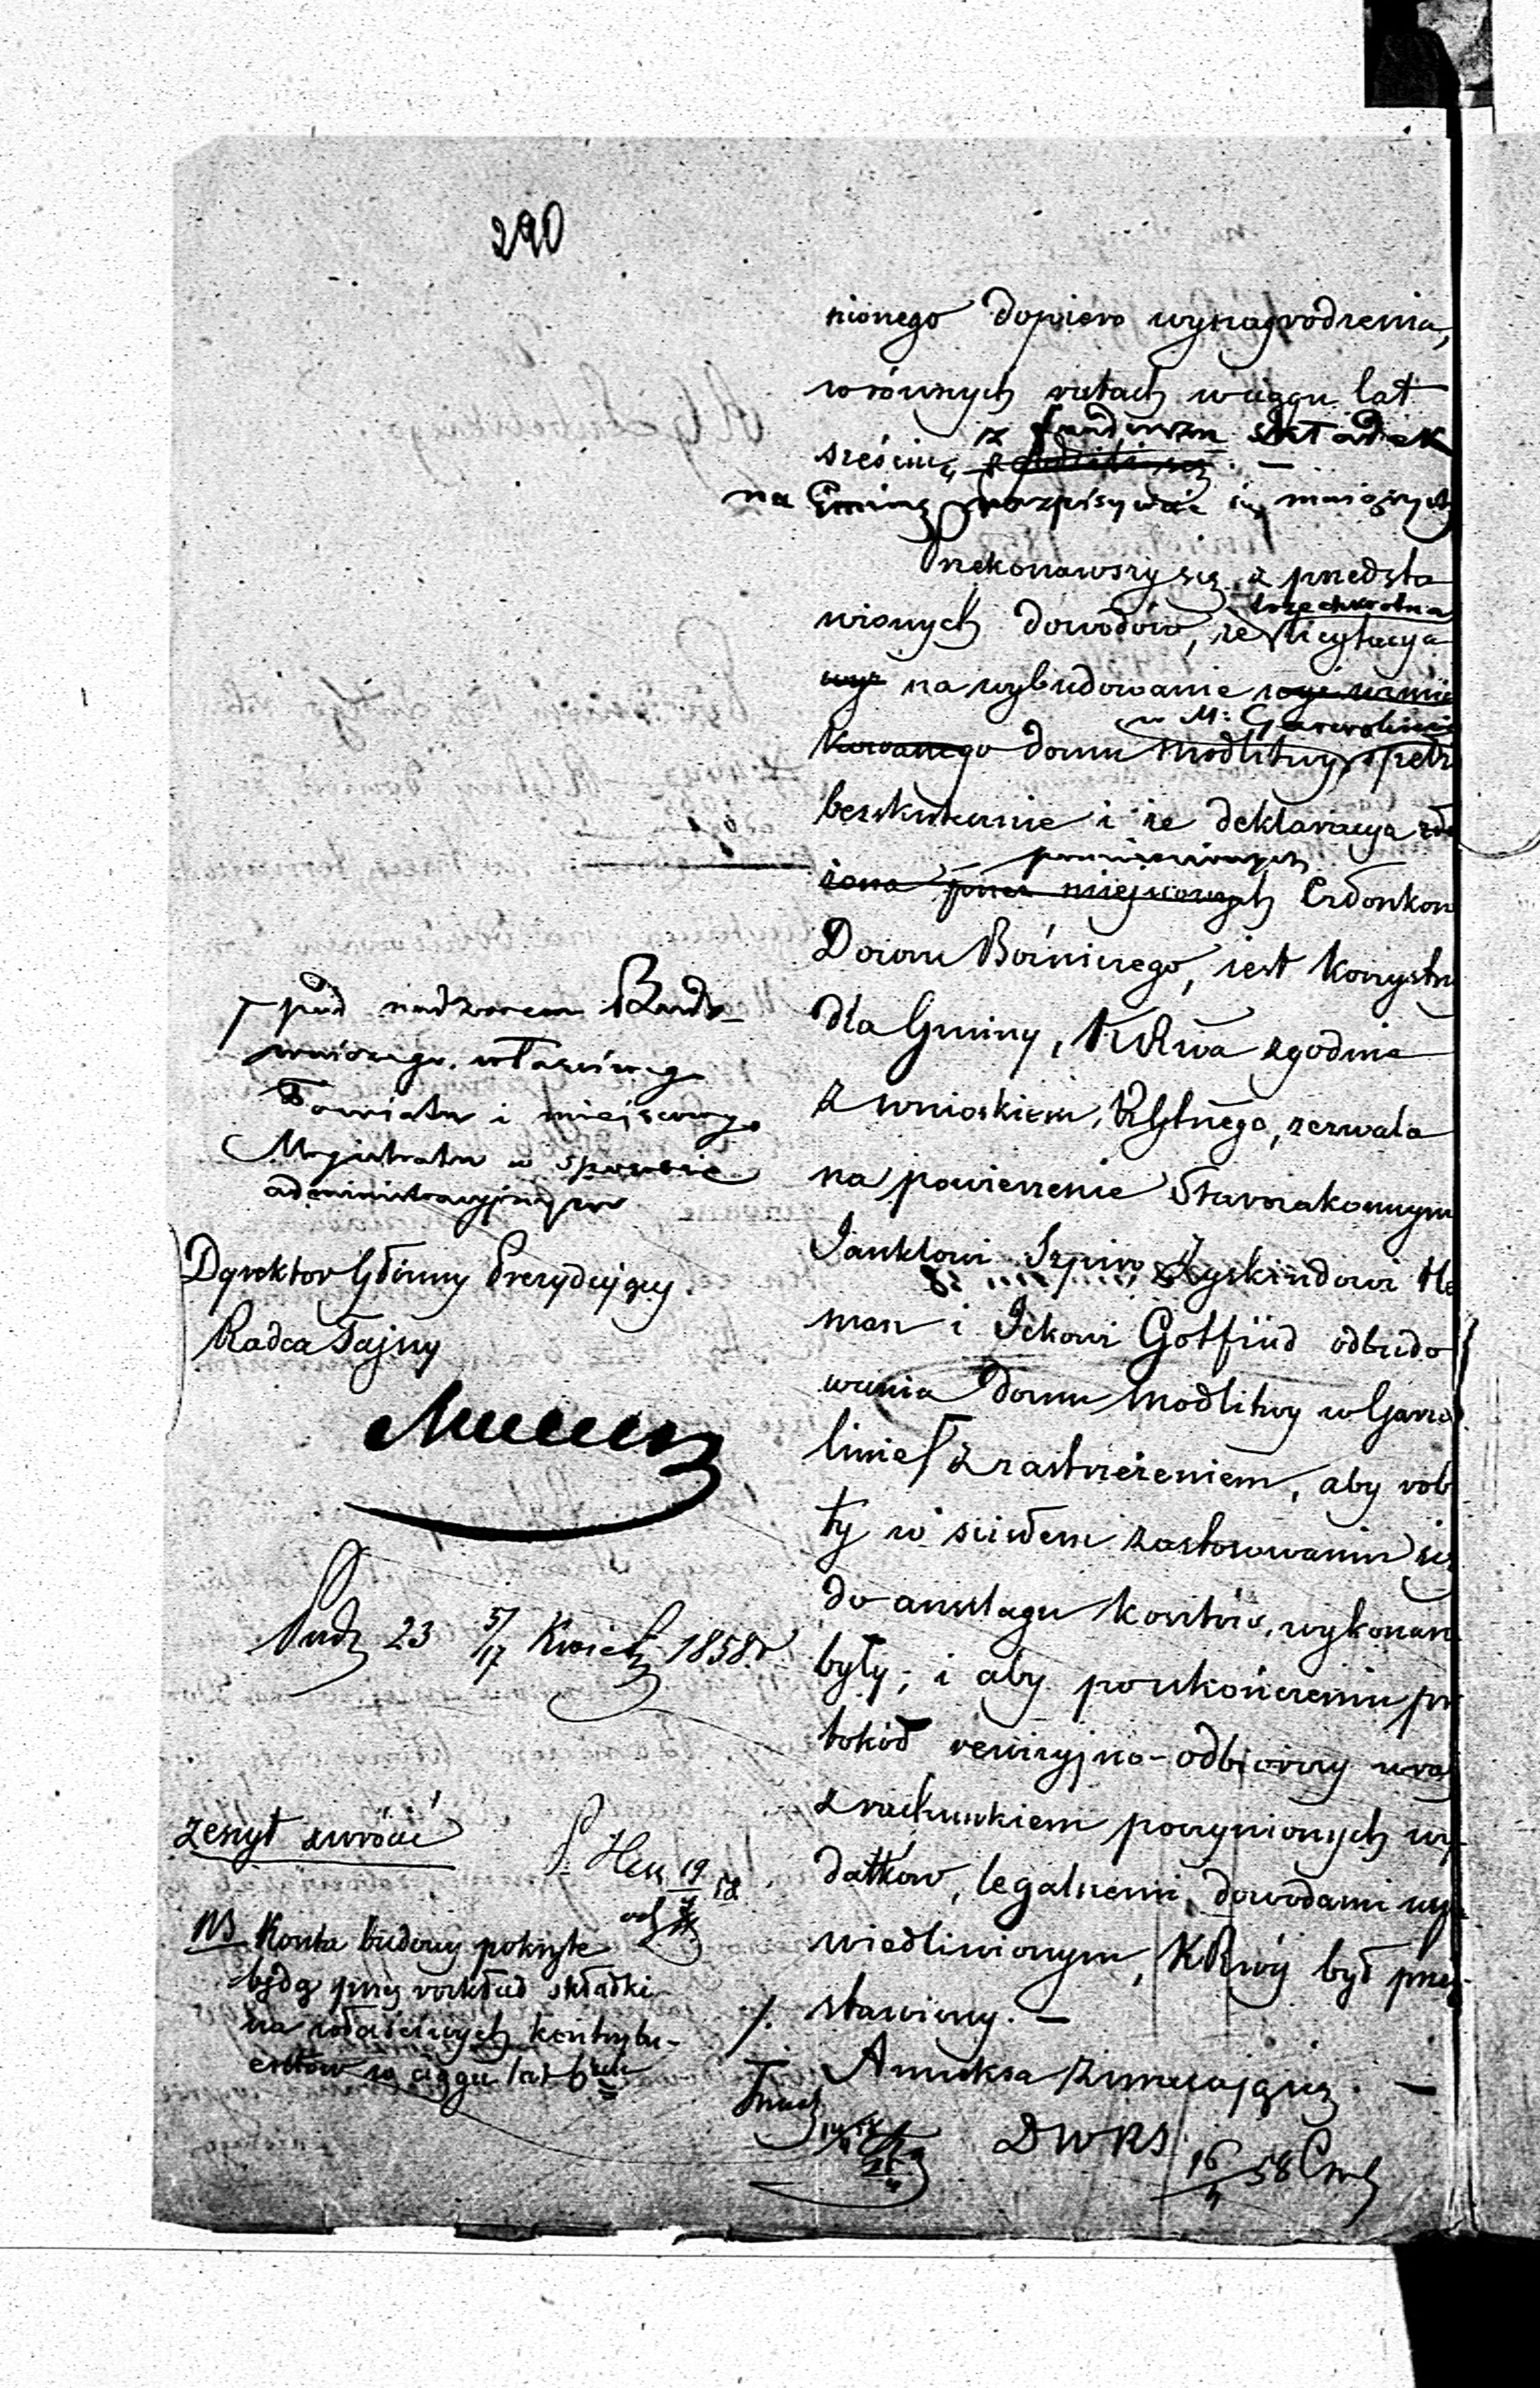 290
nionego dopiero wynagrodzenia,
w równych ratach w ciągu lat
sześciu, z funduszu składek
na Gminę rozpisywać się mających
Przekonawszy się z przedsta
wionych dowodów, że trzechkrotna licytacya
na wybudowanie
w M: Garwolinie
domu modlitwy, spełz
bezskutecznie i że deklaracya zło
żona przez miejscowych Członków
Dozoru Bóżniczego, jest korzystn
dla Gminy, KRwa zgodnie
z wnioskiem Rządu Gubnego, zezwala
na powierzenie Starozakonnym
Janklowi Szpiro, Zyskindowi He
man i Ickowi Gotfrid odbudo
wania Domu modlitwy w Garwo
linie z zastrzeżeniem, aby robo
ty w ścisłem zastosowaniu się
do anszlagu kosztów, wykonan
były; i aby po ukończeniu pro
tokół rewizyjno-odbiorczy wraz
z rachunkiem poczynionych wy
datków, legalnemi dowodami uspra
wiedliwionym, KRwéj był przed
stawiony. —
Annexa zwracającz. —
DWRS 16/4 58
pod nadzorem Budo-
wniczego właściwego
Powiatu i miejscowego
Magistratu w sposobie
administracyjnym
Dyrektor Główny Prezydujący
Radca Tajny
Pudz 23 5/17 Kwiet 1858 r
zeszyt zwrócić
Hen 19 58
NB Koszta budowy pokryte
będą przez rozkład składki
na właściwych kontrybu-
entów w ciągu lat 6